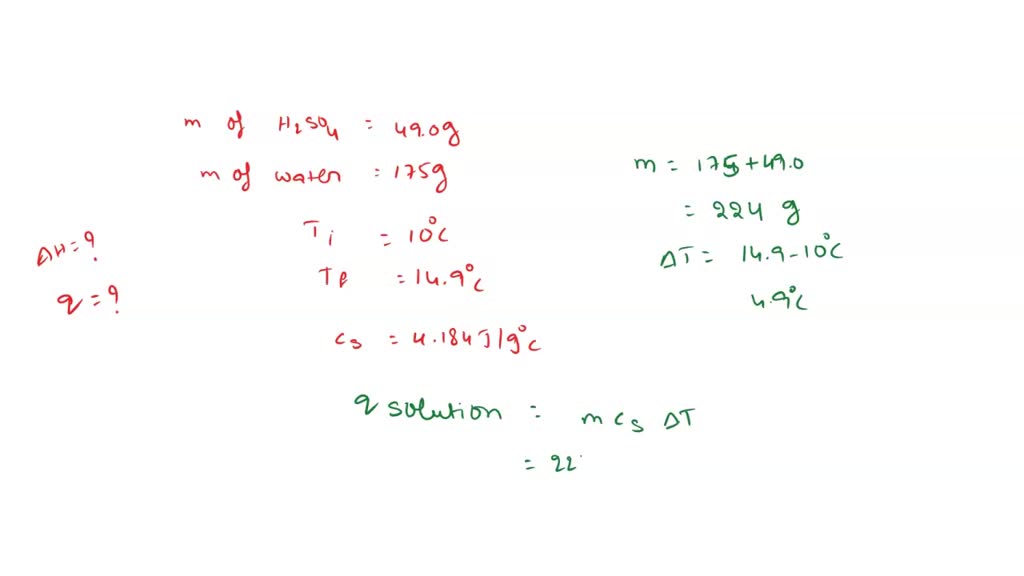 m of H₂SO₄ = 49.0g
m of water = 175g
Ti = 10°C
Tf = 14.9°C
cs = 4.184J/g°C
ΔH = ?
q = ?
m = 175+49.0
= 224 g
ΔT = 14.9-10°C
4.9°C
q solution = m cs ΔT
= 22